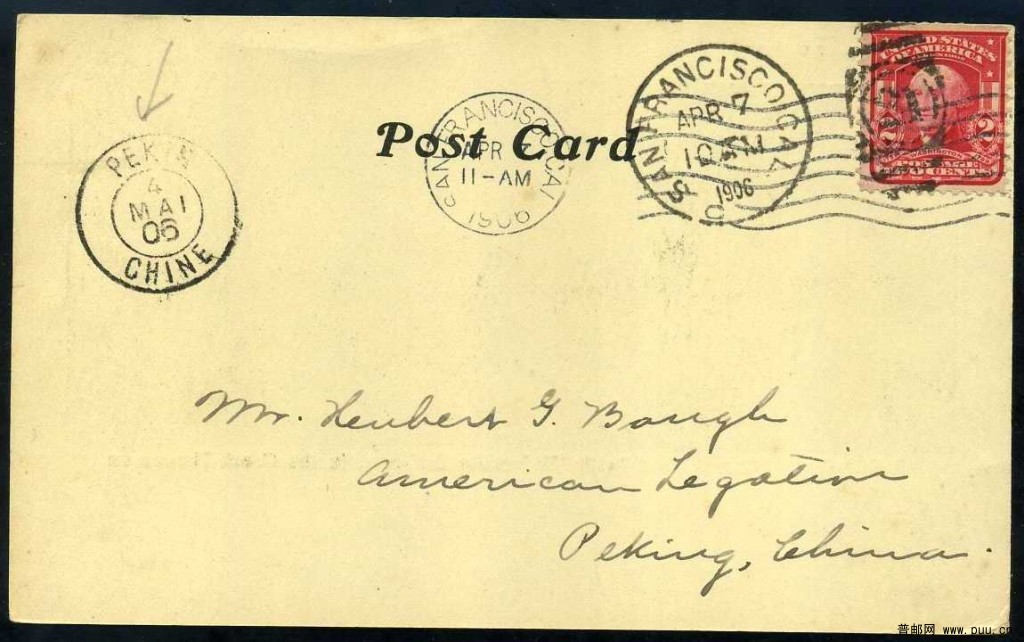 Post Card
PEKIN
4
MAI
06
CHINE
SAN FRANCISCO CAL
APR 7
11-AM
1906
SAN FRANCISCO, CAL
APR 7
1906
UNITED STATES
OF AMERICA
2 2
WASHINGTON
POSTAGE
CENTS
Mr. Herbert G. Baugh
American Legation
Peking, China.
普邮网 www.puu.cn